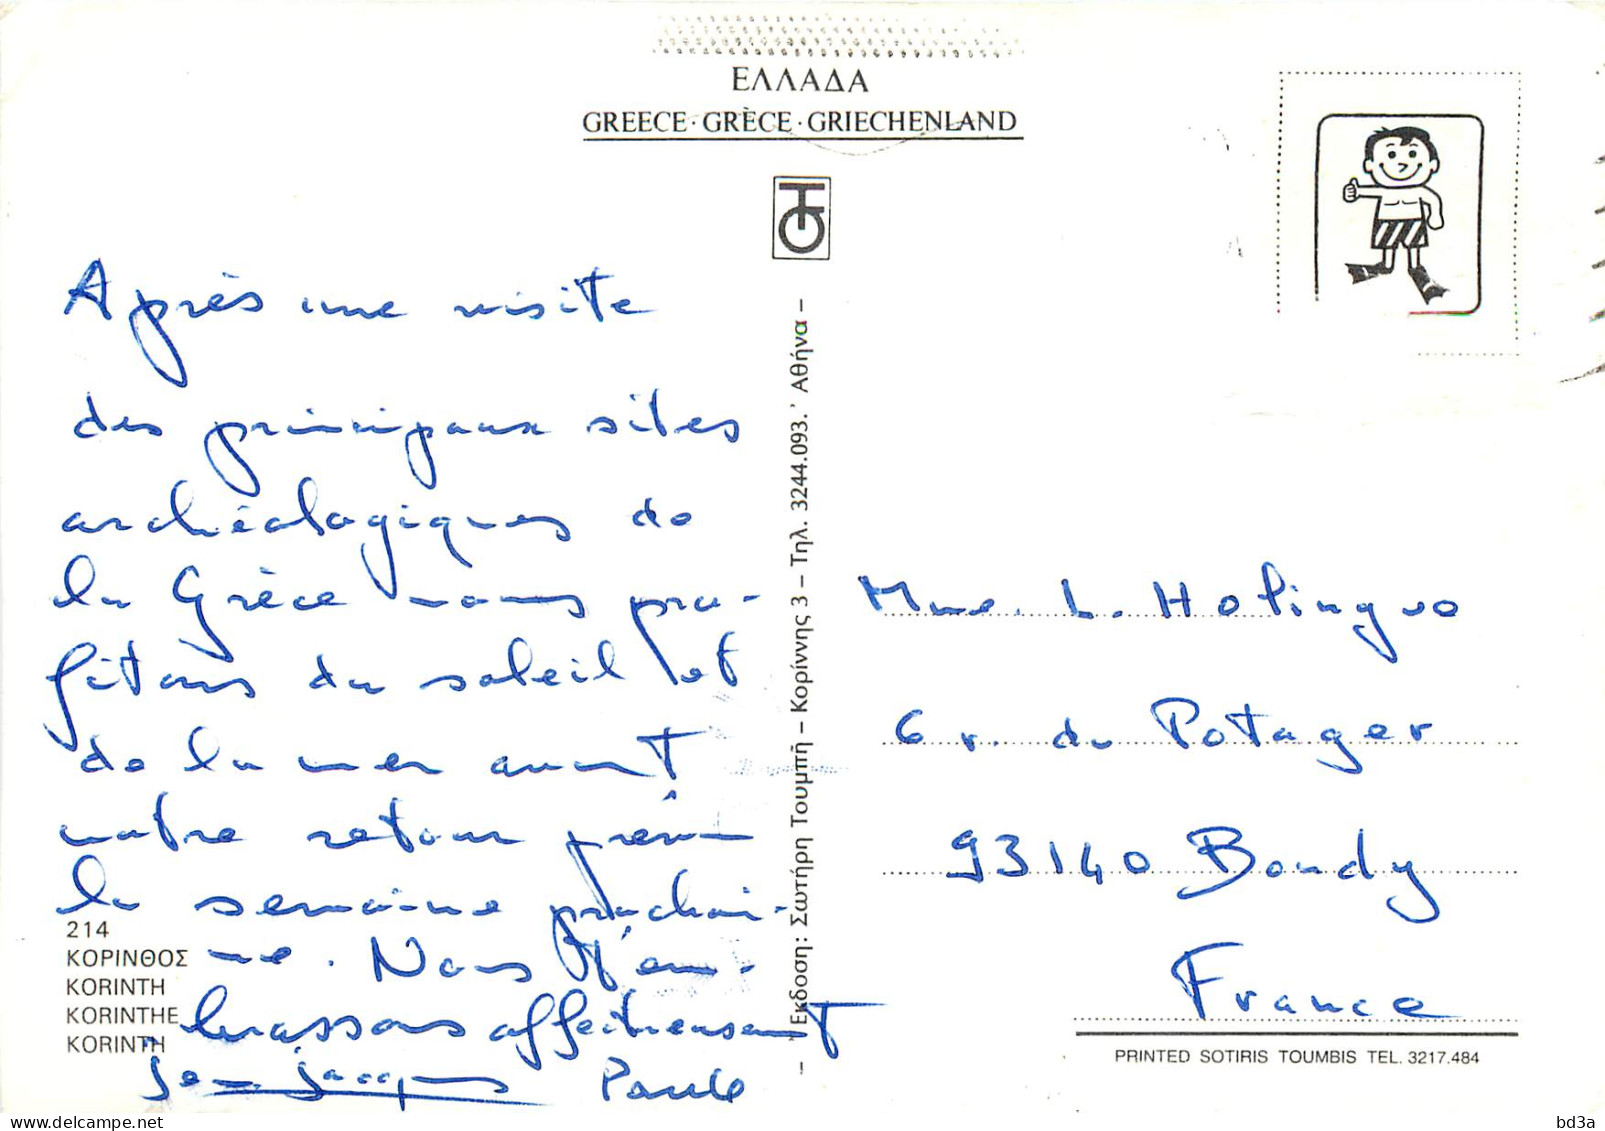 ΕΛΛΑΔΑ
GREECE · GRÈCE · GRIECHENLAND
Après une visite
des principaux sites
archéologiques de
la Grèce nous pro-
fitons du soleil et
de la mer avant
notre retour prévu
la semaine prochai-
ne. Nous t'em-
brassons affectueusement
Jean Jacques Paule
214
ΚΟΡΙΝΘΟΣ
KORINTH
KORINTHE
KORINTH
– Έκδοση: Σωτήρη Τουμπή – Κορίννης 3 – Τηλ. 3244.093. ' Αθήνα –
Mme. L. Holingue
6 r. du Potager
93140 Bondy
France
PRINTED SOTIRIS TOUMBIS TEL. 3217.484
bd3a